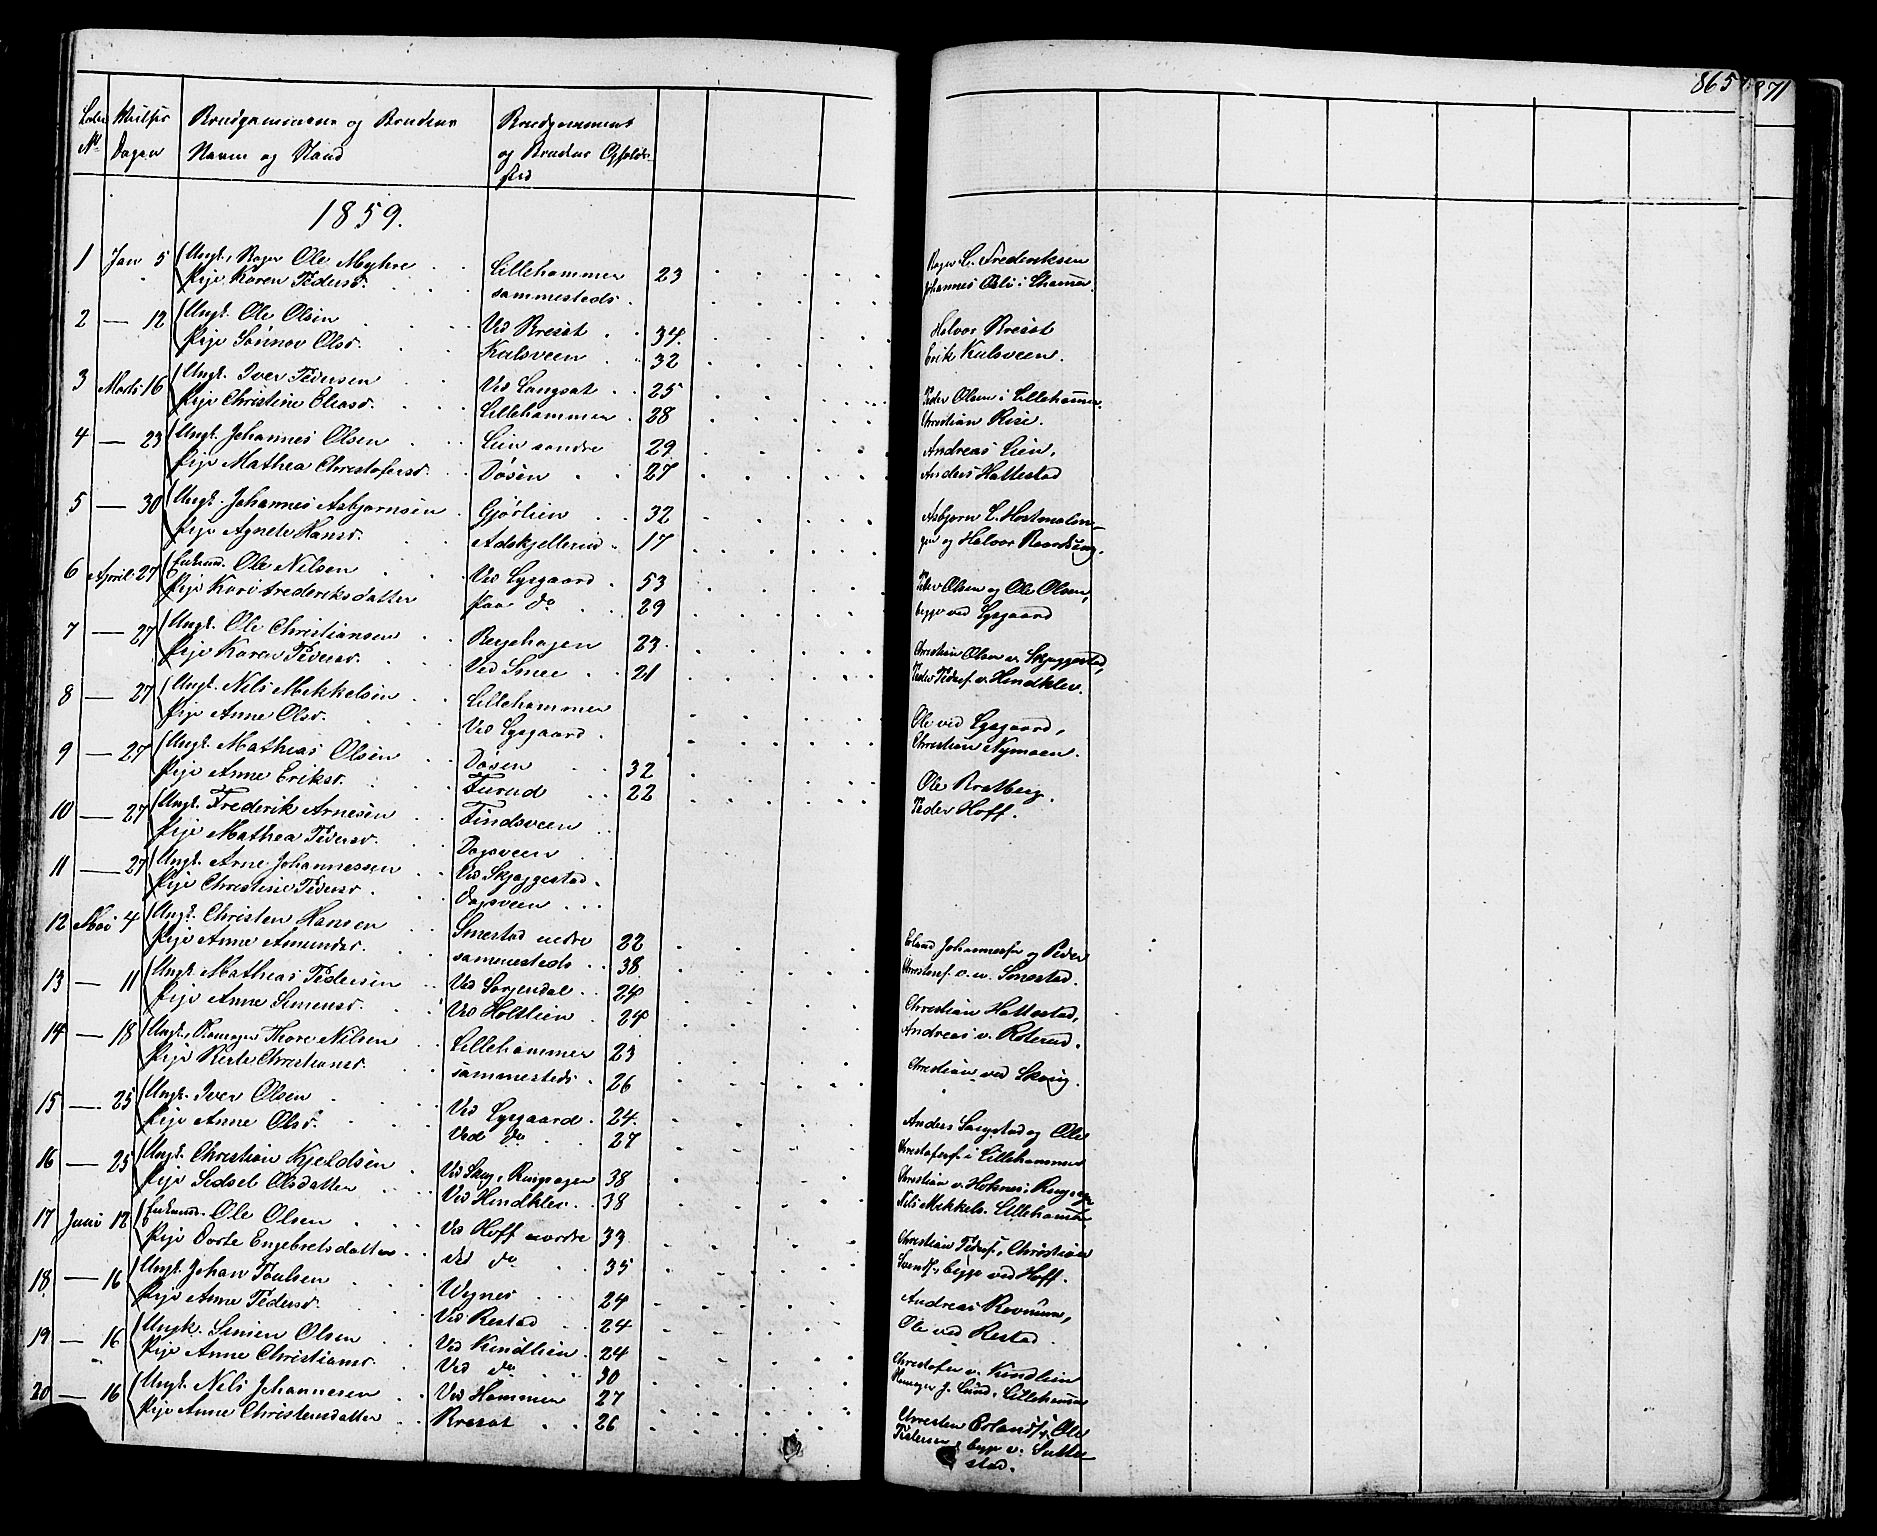 865
871
Løbe Vielses Brudgommens og Brudens Brudgommens
No Dagen Navne og Stand og Brudens Opholds-
sted
1859.
1 Jan 5 Ungk. Bager Ole Myhre Lillehammer 23 Bager L. Frederiksen
Pige Karen Pedersd. sammesteds Johannes i Lhamer.
2 — 12 Ungk. Ole Olsen Ved Bresat 34 Halvor Bresat
Pige Sønnov Olsd. Kalsveen 32 Erik Kalsveen.
3 Mads 16 Ungk. Iver Pedersen Ved Langsat 25 Peder Olsen i Lillehamer.
Pige Christine Eliasd. Lillehammer 28 Christian Rise.
4 — 23 Ungk. Johannes Olsen Lien søndre 29 Andreas Lien,
Pige Mathea Christofersd. Døsen 27 Anders Hattestad
5 — 30 Ungk. Johannes Asbjørnsen Gjørlien 32 Asbjørn L.
Pige Agnete Hansd. Adskjellerud 17 og Halvor
6 April 27 Enkem. Ole Nilsen Ved Lysgaard 53 Peder Olsen og Ole Olsen,
Pige Kari Frederiksdatter paa do 29 begge ved Lysgaard
7 — 27 Ungk. Ole Christiansen Bergehagen 23 Christian Olsen v. Skjæggestad,
Pige Karen Pedersd. Ved Smee 21 Peder Peders. v. Hindklev.
8 — 27 Ungk. Nils Mikkelsen Lillehammer Ole ved Lysgaard,
Pige Anne Olsd. Ved Lysgaard Christian Nymoen.
9 — 27 Ungk. Mathias Olsen Døsen 32 Ole Bratberg.
Pige Anne Eriksd. Furud 22 Peder Hoff.
10 — 27 Ungk. Frederik Arnesen Findsveen
Pige Mathea Pedersd. Dagsveen
11 — 27 Ungk. Arne Johannessen Ved Skjæggestad
Pige Christine Pedersd. Dagsveen
12 Mai 4 Ungk. Christen Hansen Smestad nedre 22 Erland Johannesen og Peder
Pige Anne Amundsd. sammesteds 38 Christens. v. Smestad.
13 — 11 Ungk. Mathias Pedersen Ved Sorgendal 24 Christian Hattestad,
Pige Anne Simensd. Ved Holtlien 24 Andreas v. Roterud.
14 — 18 Ungk. Thore Nilsen Lillehammer 23 Christian ved Skoug.
Pige Berte Christiansd. sammesteds 26
15 — 25 Ungk. Iver Olsen Ved Lysgaard 24 Anders Langstad og Ole
Pige Anne Olsd. Ved do 27 Christofers. i Lillehammer
16 — 25 Ungk. Christian Kjeldsen Ved Skug, Ringsager 38 Christian v. Ringsager
Pige Sedsel Olsdatter Ved Hindklev 38 Nils Mikkels. Lillehamer
17 Juni 12 Enkem. Ole Olsen Ved Hoff nordre 33 Christian Peders., Christian
Pige Dorte Engebretsdatter ved do 35 Svends., begge ved Hoff.
18 — 16 Ungk. Johan Poulsen Vignes 24 Andreas Rovnum,
Pige Anne Pedersd. Ved Restad 24 Ole ved Restad
19 — 16 Ungk. Simen Olsen Ved Kindlien 24 Christofer v. Kindlien
Pige Anne Christiansd. Ved do 30 J. Lund, Lillehamer
20 — 16 Ungk. Nils Johannesen Ved Hammer 27 Christen Erlands., Ole
Pige Anne Christensdatter Bresat 26 Pedersen, begge v. Sutte-
stad.